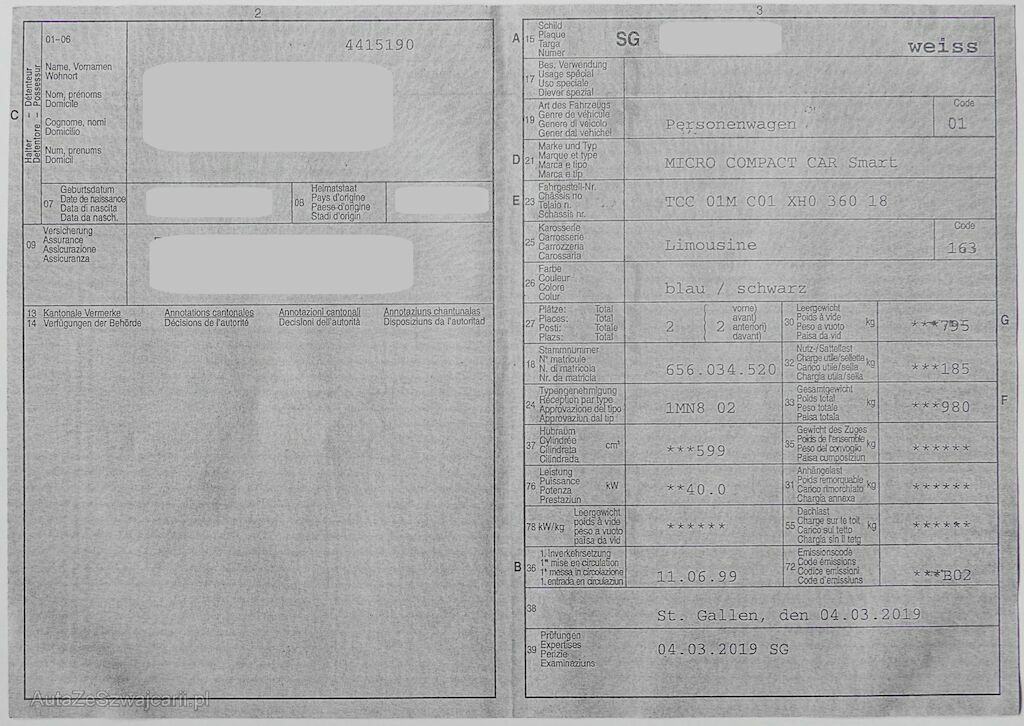 2
01-06
4415190
Name, Vornamen
Wohnort
Nom, prénoms
Domicile
Cognome, nomi
Domicilio
Num, prenums
Domicil
C
Halter – Détenteur
Detentore – Possessur
07
Geburtsdatum
Date de naissance
Data di nascita
Data da nasch.
08
Heimatstaat
Pays d'origine
Paese d'origine
Stadi d'origin
09
Versicherung
Assurance
Assicurazione
Assicuranza
13 Kantonale Vermerke Annotations cantonales Annotazioni cantonali Annotaziuns chantunalas
14 Verfügungen der Behörde Décisions de l'autorité Decisioni dell'autorità Disposiziuns da l'autoritad
AutaZeSzwajcarii.pl
3
A 15
Schild
Plaque
Targa
Numer
SG
weiss
17
Bes. Verwendung
Usage spécial
Uso speciale
Diever spezial
19
Art des Fahrzeugs
Genre de véhicule
Genere di veicolo
Gener dal vehichel
Personenwagen
Code
01
D 21
Marke und Typ
Marque et type
Marca e tipo
Marca e tip
MICRO COMPACT CAR Smart
E 23
Fahrgestell-Nr.
Châssis no
Telaio n.
Schassis nr.
TCC 01M C01 XH0 360 18
25
Karosserie
Carrosserie
Carrozzeria
Carossaria
Limousine
Code
163
26
Farbe
Couleur
Colore
Colur
blau / schwarz
27
Plätze: Total
Places: Total
Posti: Totale
Plazs: Total
2
( 2
vorne)
avant)
anteriori)
davant)
30
Leergewicht
Poids à vide
Peso a vuoto
Paisa da vid
kg
***795
G
18
Stammnummer
N° matricule
N. di matricola
Nr. da matricla
656.034.520
32
Nutz-/Sattellast
Charge utile/sellette
Carico utile/sella
Chargia utila/sella
kg
***185
24
Typengenehmigung
Réception par type
Approvazione del tipo
Approvaziun dal tip
1MN8 02
33
Gesamtgewicht
Poids total
Peso totale
Paisa totala
kg
***980
F
37
Hubraum
Cylindrée
Cilindrata
Cilindrada
cm³
***599
35
Gewicht des Zuges
Poids de l'ensemble
Peso del convoglio
Paisa cumposiziun
kg
******
76
Leistung
Puissance
Potenza
Prestaziun
kW
**40.0
31
Anhängelast
Poids remorquable
Carico rimorchiato
Chargia annexa
kg
******
78 kW/kg
Leergewicht
poids à vide
peso a vuoto
paisa da vid
******
55
Dachlast
Charge sur le toit
Carico sul tetto
Chargia sin il tetg
kg
******
B 36
1. Inverkehrsetzung
1re mise en circulation
1a messa in circolazione
1. entrada en circulaziun
11.06.99
72
Emissionscode
Code émissions
Codice emissioni
Code d'emissiuns
***B02
38
St. Gallen, den 04.03.2019
39
Prüfungen
Expertises
Perizie
Examinaziuns
04.03.2019 SG